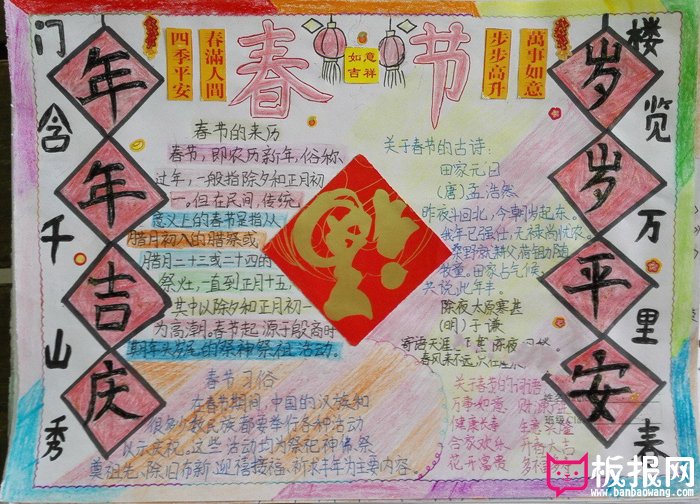 春节
四季平安
春滿人間
如意
吉祥
步步高升
萬事如意
门含千山秀
楼览万里
年年吉庆
岁岁平安
春节的来历
春节,即农历新年,俗称
过年,一般指除夕和正月初
一。但在民间,传统
意义上的春节是指从
腊月初八的腊祭或
腊月二十三或二十四的
祭灶,一直到正月十五,
其中以除夕和正月初一
为高潮。春节起源于殷商时
期年头岁尾的祭神祭祖活动。
春节习俗
在春节期间,中国的汉族和
很多少数民族都要举行各种活动
以示庆祝。这些活动均为祭祀神佛、祭
奠祖先、除旧布新、迎禧接福、祈求丰年为主要内容。
关于春节的古诗:
田家元日
(唐)孟浩然
昨夜斗回北,今朝岁起东。
我年已强仕,无禄尚忧农。
桑野就耕父,荷锄随
牧童。田家占气候,
共说此年丰。
除夜太原寒甚
(明)于谦
寄语天涯
除夜
春风来不远,只在
关于春节的词语
万事如意
健康长寿
合家欢乐
花开富贵
板报网
www.banbaowang.com